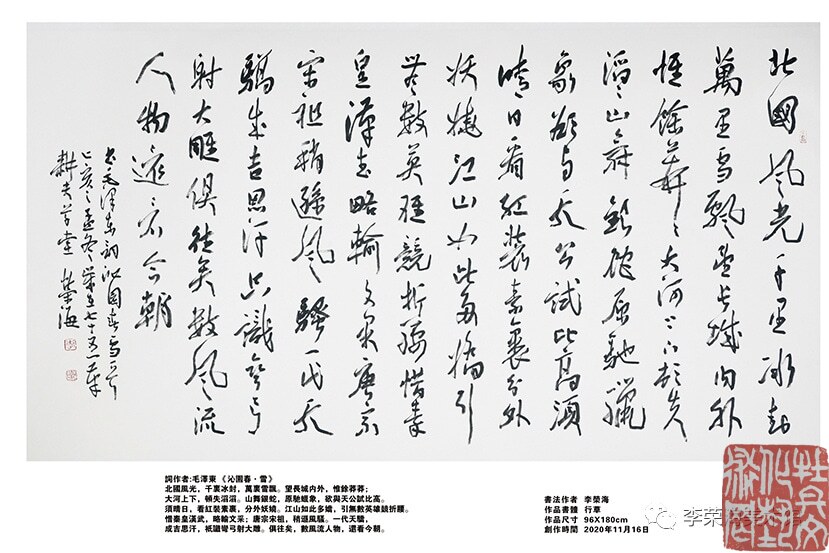 北國風光千里冰封
萬里雪飄望長城内外
惟餘莽〻大河上下頓失
滔〻山舞銀蛇原馳蠟
象欲与天公試比高須
晴日看紅裝素裹分外
妖嬈江山如此多嬌引
無數英雄競折腰惜秦
皇漢武略輸文采唐宗
宋祖稍遜風騷一代天
驕成吉思汗只識彎弓
射大雕俱往矣數風流
人物還看今朝
書毛澤東詞沁園春雪
己亥之孟冬
耕夫草堂 榮海
詞作者:毛澤東 《沁園春·雪》
北國風光,千裏冰封,萬裏雪飄。望長城内外,惟餘莽莽;
大河上下,頓失滔滔。山舞銀蛇,原馳蠟象,欲與天公試比高。
須晴日,看紅裝素裹,分外妖嬈。江山如此多嬌,引無數英雄競折腰。
惜秦皇漢武,略輸文采;唐宗宋祖,稍遜風騷。一代天驕,
成吉思汗,衹識彎弓射大雕。俱往矣,數風流人物,還看今朝。
書法作者 李榮海
作品書體 行草
作品尺寸 96X180cm
創作時間 2020年11月16日
李荣海